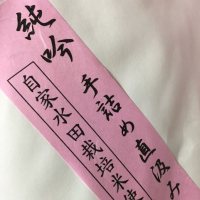 純吟
手詰め直汲み
自家水田栽培米